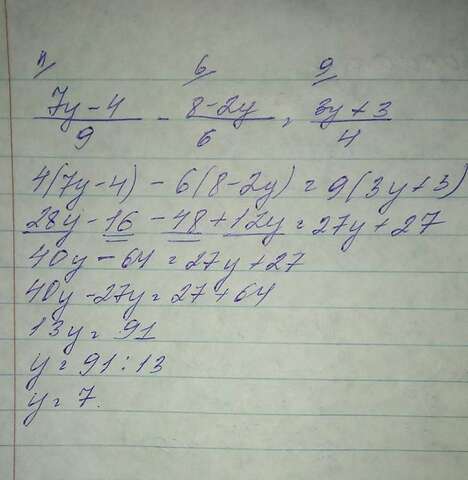 4/ 6/ 9/
7y-4/9 - 8-2y/6 = 3y+3/4
4(7y-4) - 6(8-2y) = 9(3y+3)
28y-16-48+12y=27y+27
40y-64=27y+27
40y-27y=27+64
13y=91
y=91:13
y=7.